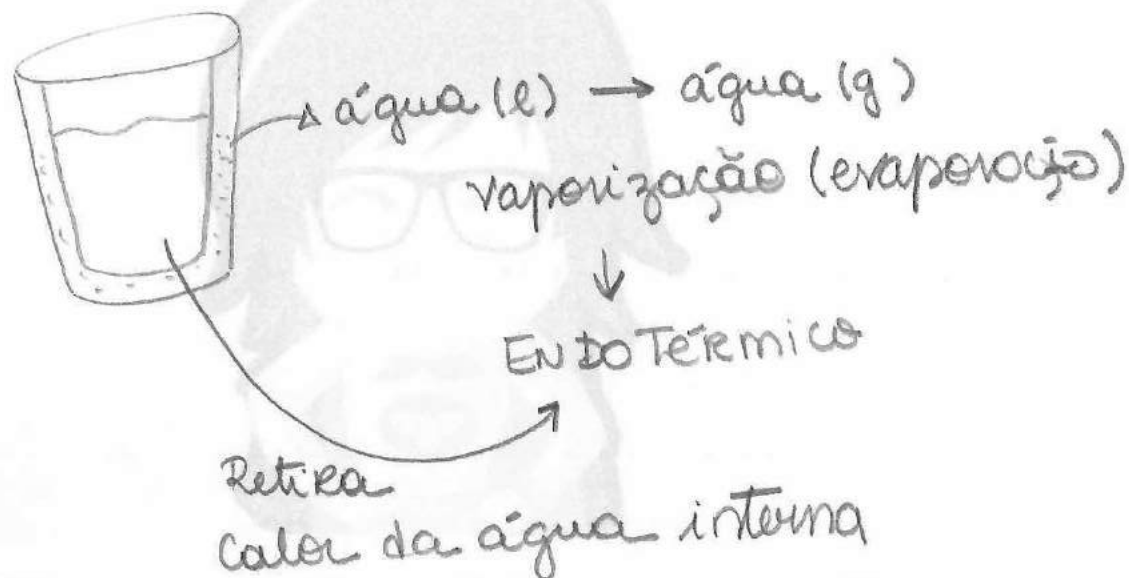 água (l) → água (g)
vaporização (evaporação)
↓
ENDOTÉRMICO
Retira
calor da água interna